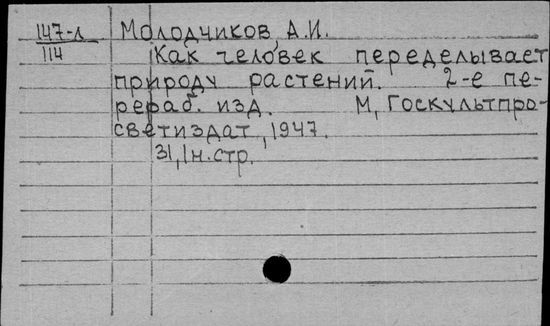 147-л Молодчиков, А.И.
114 Как человек переделывает
природу растений. 2-е пе-
рераб. изд. М, Госкультпро-
светиздат, 1947.
31, 1 н. стр.